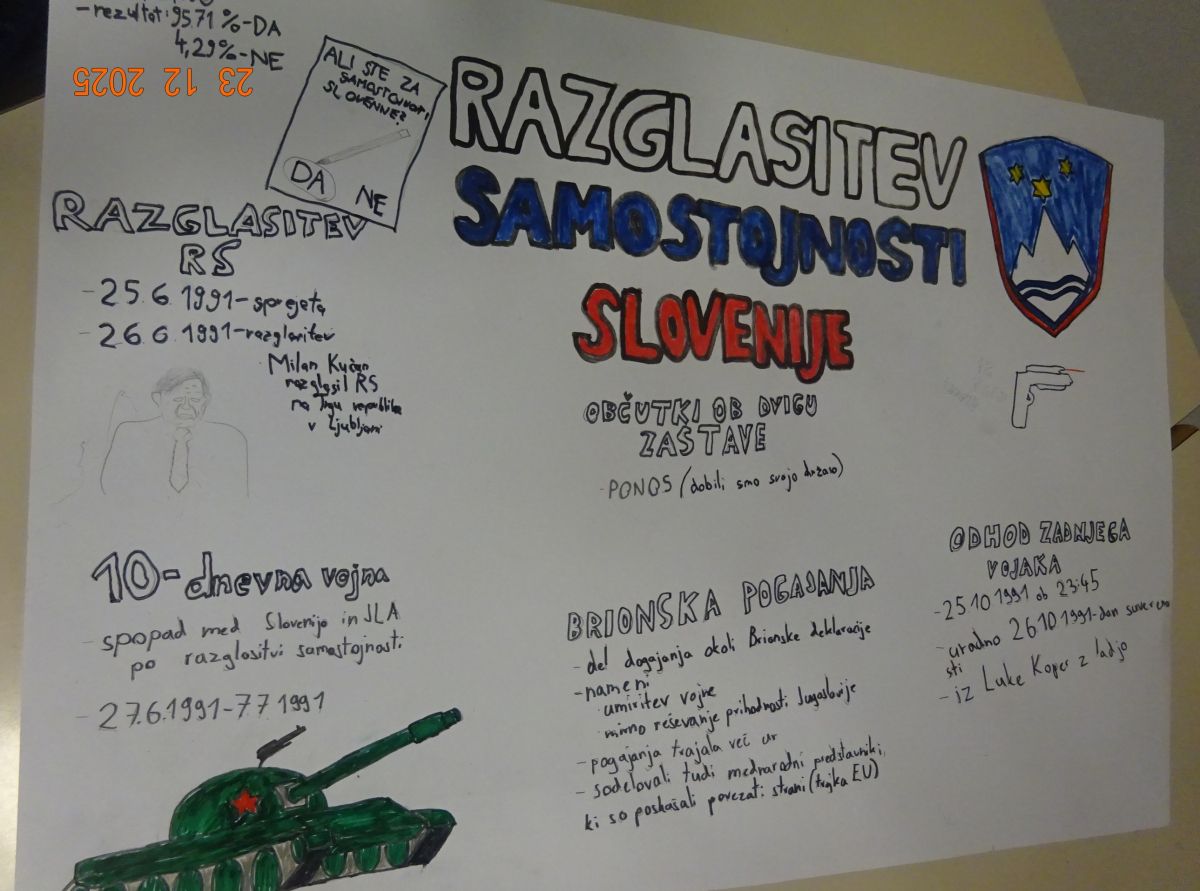 - rezultat: 95.71 %-DA
4,29%-NE
23 12 2025
ALI STE ZA
SAMOSTOJNOST
SLOVENIJE?
DA
NE
RAZGLASITEV
SAMOSTOJNOSTI
SLOVENIJE
RAZGLASITEV
RS
- 25.6.1991-sprejeta
- 26.6.1991-razglasitev
Milan Kučan
razglasil RS
na Trgu republike
v Ljubljani
OBČUTKI OB DVIGU
ZASTAVE
- PONOS (dobili smo svojo državo)
10-dnevna vojna
- spopad med Slovenijo in JLA
po razglasitvi samostojnosti
- 27.6.1991-7.7 1991
BRIONSKA POGAJANJA
- del dogajanja okoli Brionske deklaracije
- nameni
umiritev vojne
mirno reševanje prihodnosti Jugoslavije
- pogajanja trajala več ur
- sodelovali tudi mednarodni predstavniki,
ki so poskušali povezati strani (trojka EU)
ODHOD ZADNJEGA
VOJAKA
- 25 10 1991 ob 23:45
- uradno 26 10 1991-dan suvereno
sti
- iz Luke Koper z ladjo